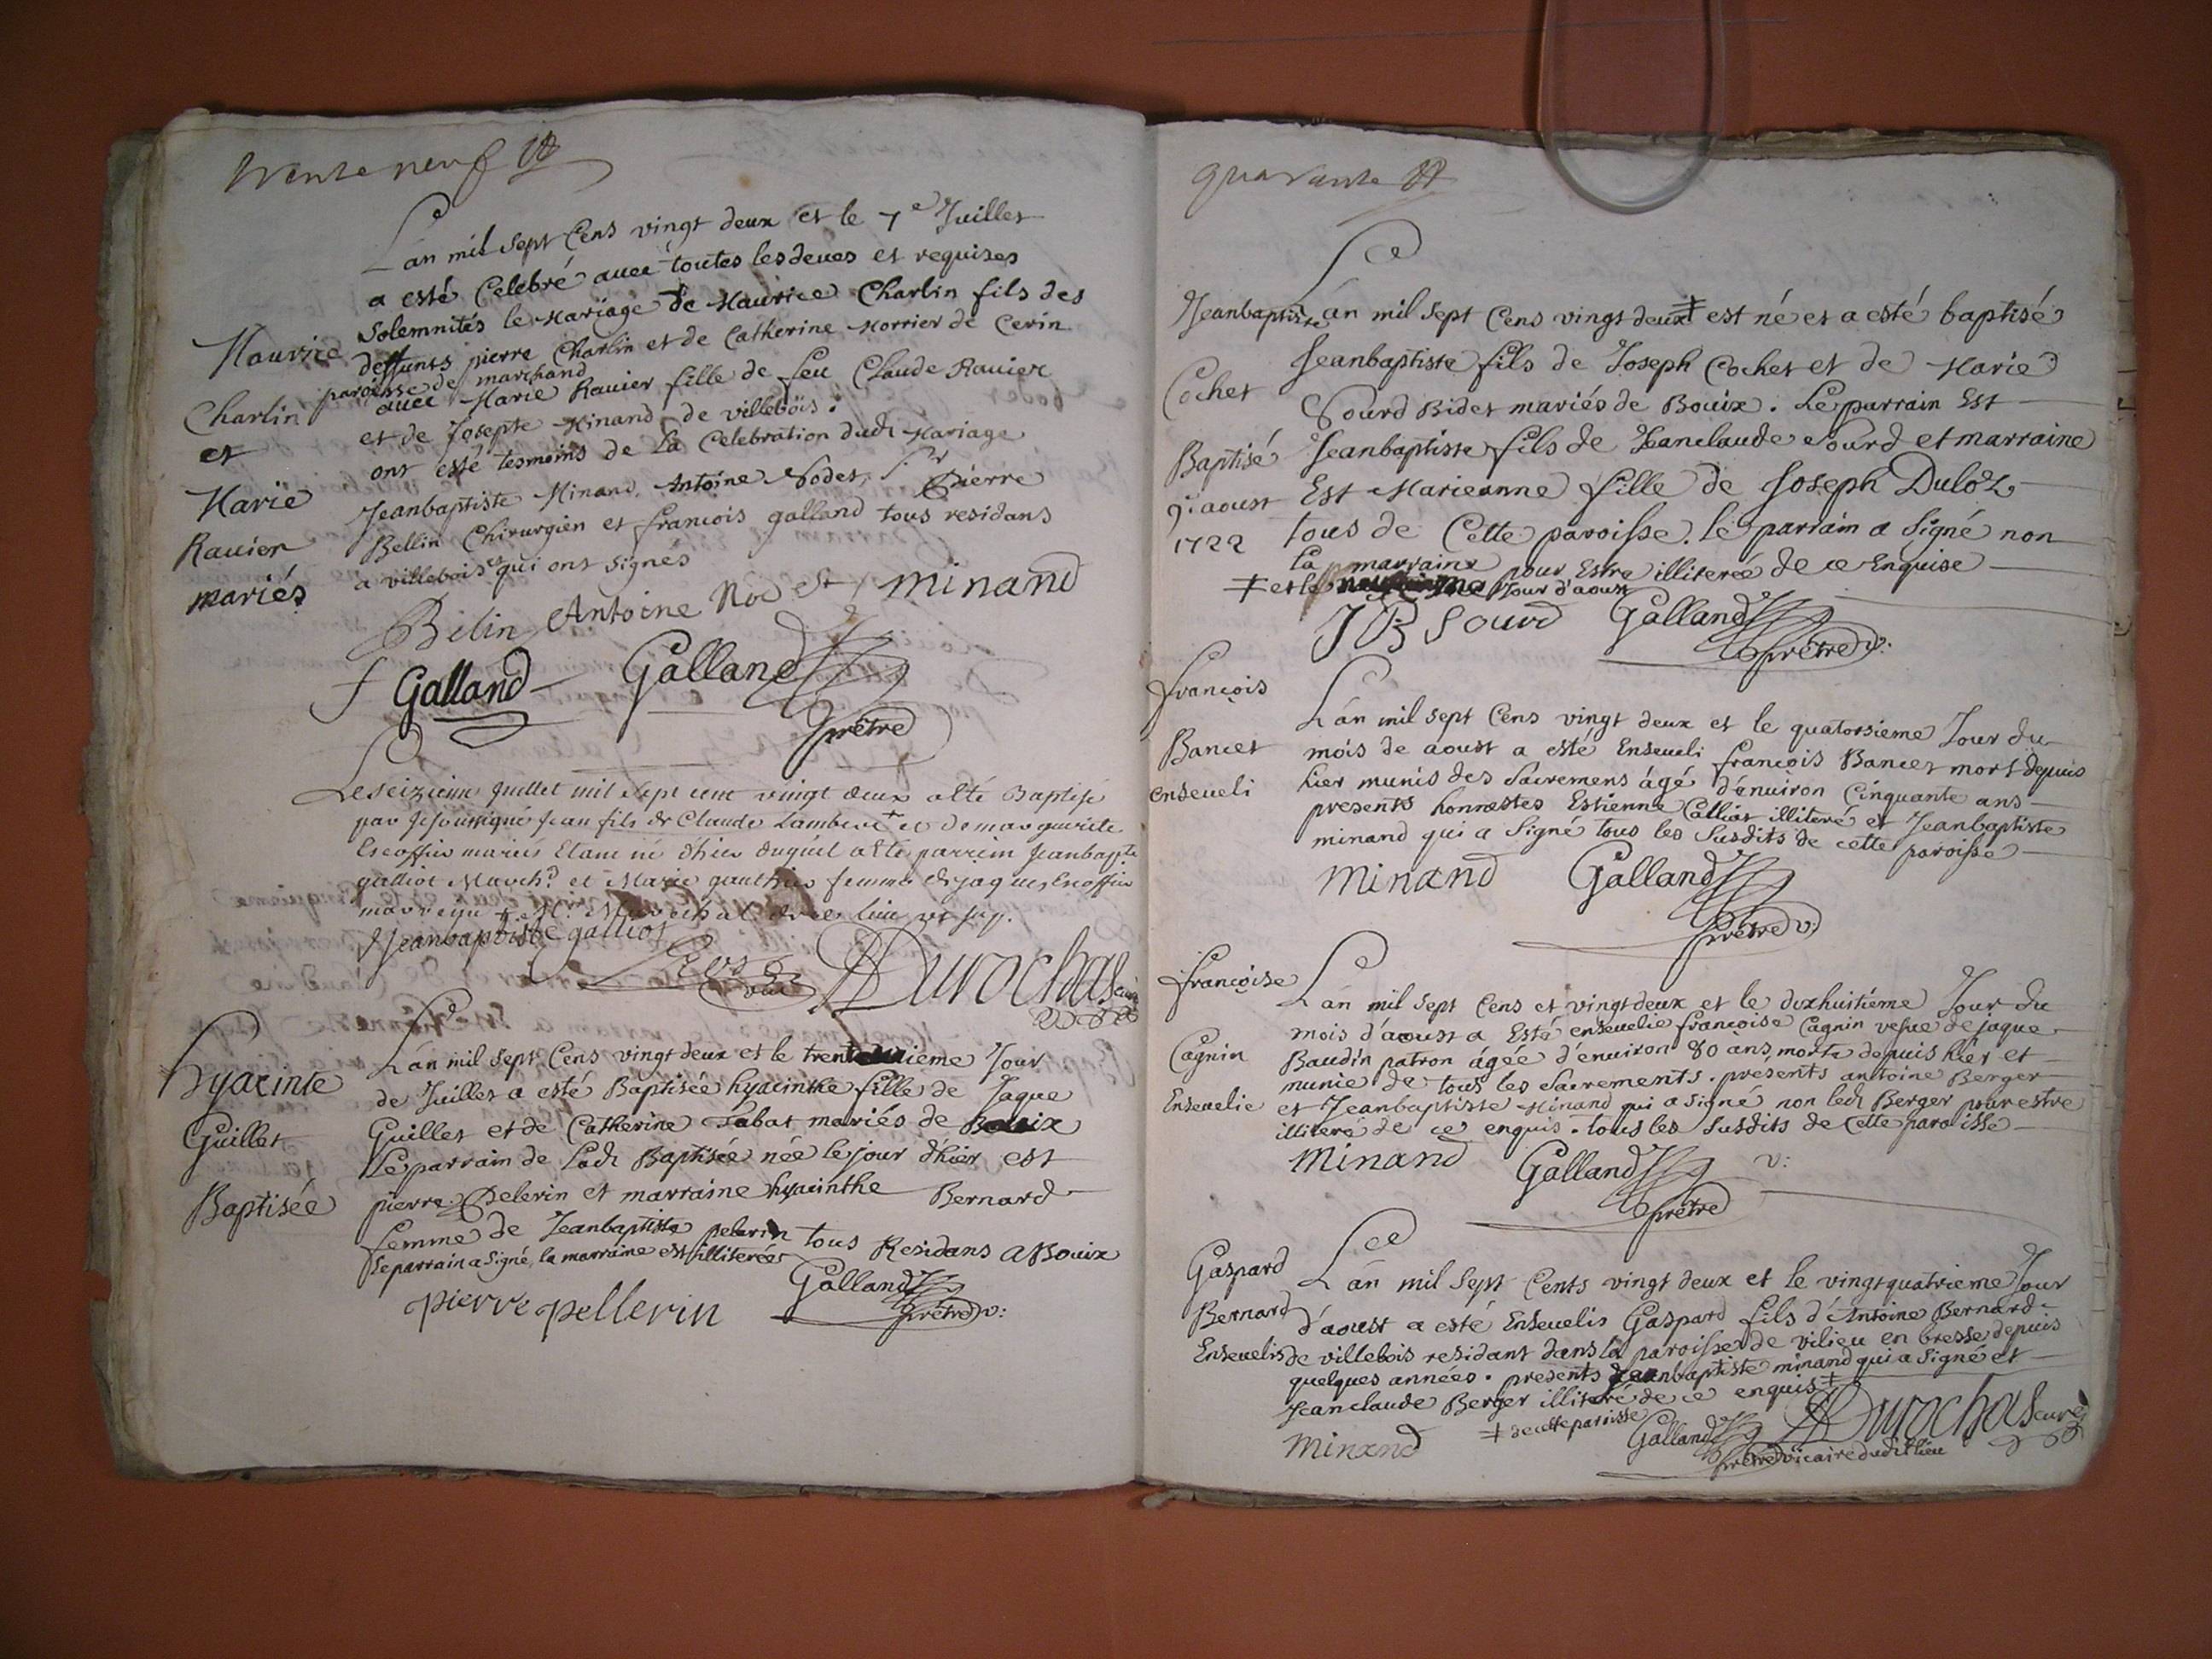 trente neuf
L'an mil sept Cens vingt deux et le 7e Juillet
a esté Celebré auec toutes les deues et requises
Solemnités le Mariage de Maurice Charlin fils des
deffunts pierre Charlin et de Catherine Morrier de Cerin
paroisse de marchand
auec Marie Rauier fille de feu Claude Rauier
et de Josepte Minand de villebois.
ont esté tesmoins de La Celebration dudt Mariage
Jeanbaptiste Minand, Antoine Nodet, Sr Pierre
Bellin Chirurgien et francois galland tous residans
a villebois et qui ont signés
Maurice
Charlin
et
Marie
Rauier
mariés
Belin Antoine Nodet minand
f Galland Galland
prêtre
Le seizieme Juillet mil sept cent vingt deux a ete Baptisé
par Je soussigné Jean fils de Claude Lambert + et de marguerite
Escoffier mariés Etant né d'hier duquel a ete parrein Jeanbapte
galliot March.d et Marie gauthier femme de jaque Escoffier
marreyne +
Jeanbaptiste galliot
Durochas curé
L'an mil sept Cens vingt deux et le ieme Jour
de Juillet a esté Baptisée hyacinthe fille de Jaque
Guillet et de Catherine Tabat mariés de Bouix
Le parrain de Ladt Baptisée née le jour d'hier est
pierre Pelerin et marraine hyacinthe Bernard
femme de Jeanbaptiste pelerin tous Residans a Bouix
le parrain a signé, la marraine est illiterée
hyacinte
Guillet
Baptisée
pierre pellerin Galland
prêtre v:
quarante
L'an mil sept Cens vingt deux ‡ est né et a esté baptisé
Jeanbaptiste fils de Joseph Cochet et de Marie
Sourd Bidet mariés de Bouix. Le parrain Est
Jeanbaptiste fils de Jeanclaude Sourd et marraine
Est Marieanne fille de Joseph Duloz
tous de Cette paroisse. le parrain a signé non
la marraine pour Estre illiterée de ce Enquise
‡ et le neufvieme Jour d'aoust
Jeanbaptiste
Cochet
Baptisé
9e aoust
1722
J B Sourd Galland
prêtre v:
L'an mil sept Cens vingt deux et le quatorsieme Jour du
mois de aoust a esté Enseueli françois Bancet mort depuis
hier munis des Sacremens âgé d'enuiron Cinquante ans
presents honnestes Estienne Calliat illiteré et Jeanbaptiste
minand qui a signé tous les susdits de cette paroisse
françois
Bancet
enseueli
minand Galland
prêtre v:
L'an mil sept Cens et vingt deux et le dixhuitième Jour du
mois d'aoust a Esté enseuelie françoise Cagnin vefue de jaque
Baudin patron âgée d'enuiron 80 ans, morte depuis hier et
munie de tous les Sacrements. presents antoine Berger
et Jeanbaptiste Minand qui a signé non ledt Berger pour estre
illiteré de ce enquis. tous les susdits de cette paroisse
françoise
Cagnin
Enseuelie
minand Galland v:
prêtre
L'an mil sept Cents vingt deux et le vingtquatrieme Jour
d'aoust a esté Enseuelis Gaspard fils d'Antoine Bernard
de villebois residant dans la paroisse de vilieu en bresse depuis
quelques années. presents Jeanbaptiste minand qui a signé et
Jeanclaude Berger illiteré de ce enquis ‡
‡ de cette paroisse
Gaspard
Bernard
Enseuelis
minand Galland Durochas curé
prêtre vicaire dudit lieu